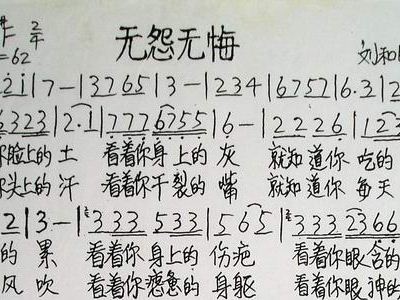 2/4 无怨无悔
=62 刘和
2 i | 7 - | 3 7 6 5 | 3 - | 2 3 4 | 6 7 5 7 | 6 . 3 | 2
6 3 2 3 | 2 . 1 | 7 7 7 6 7 5 5 | 6 - | 2 2 2 6 | 1 2 3
你脸上的土 看着你身上的灰 就知道你吃的
你头上的汗 看着你干裂的嘴 就知道你每天
2 | 3 - | 3 3 3 5 3 3 | 5 6 5 | 3 3 3 2 3 6 6
的累 看着你身上的伤疤 看着你眼含的
风吹 看着你疲惫的身躯 看着你眼神的